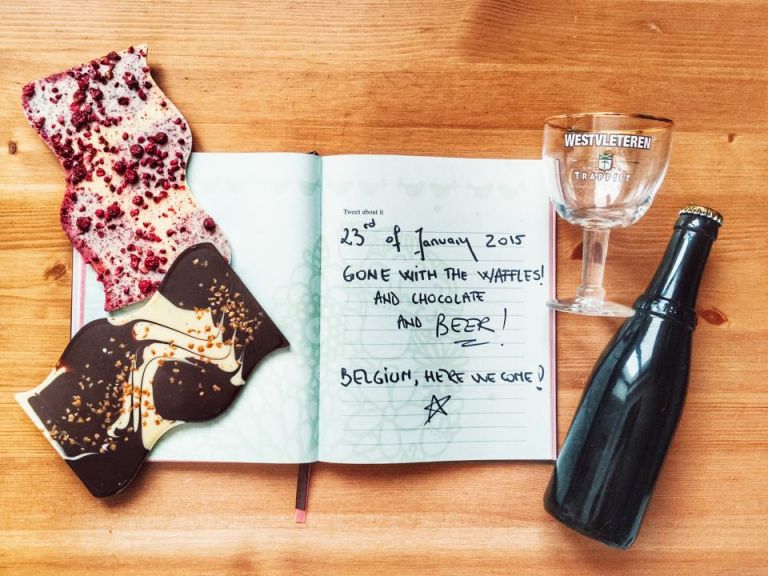 WESTVLETEREN
TRAPPIST
Tweet about it
23rd of January 2015
GONE WITH THE WAFFLES!
AND CHOCOLATE
AND BEER!
BELGIUM, HERE WE COME!